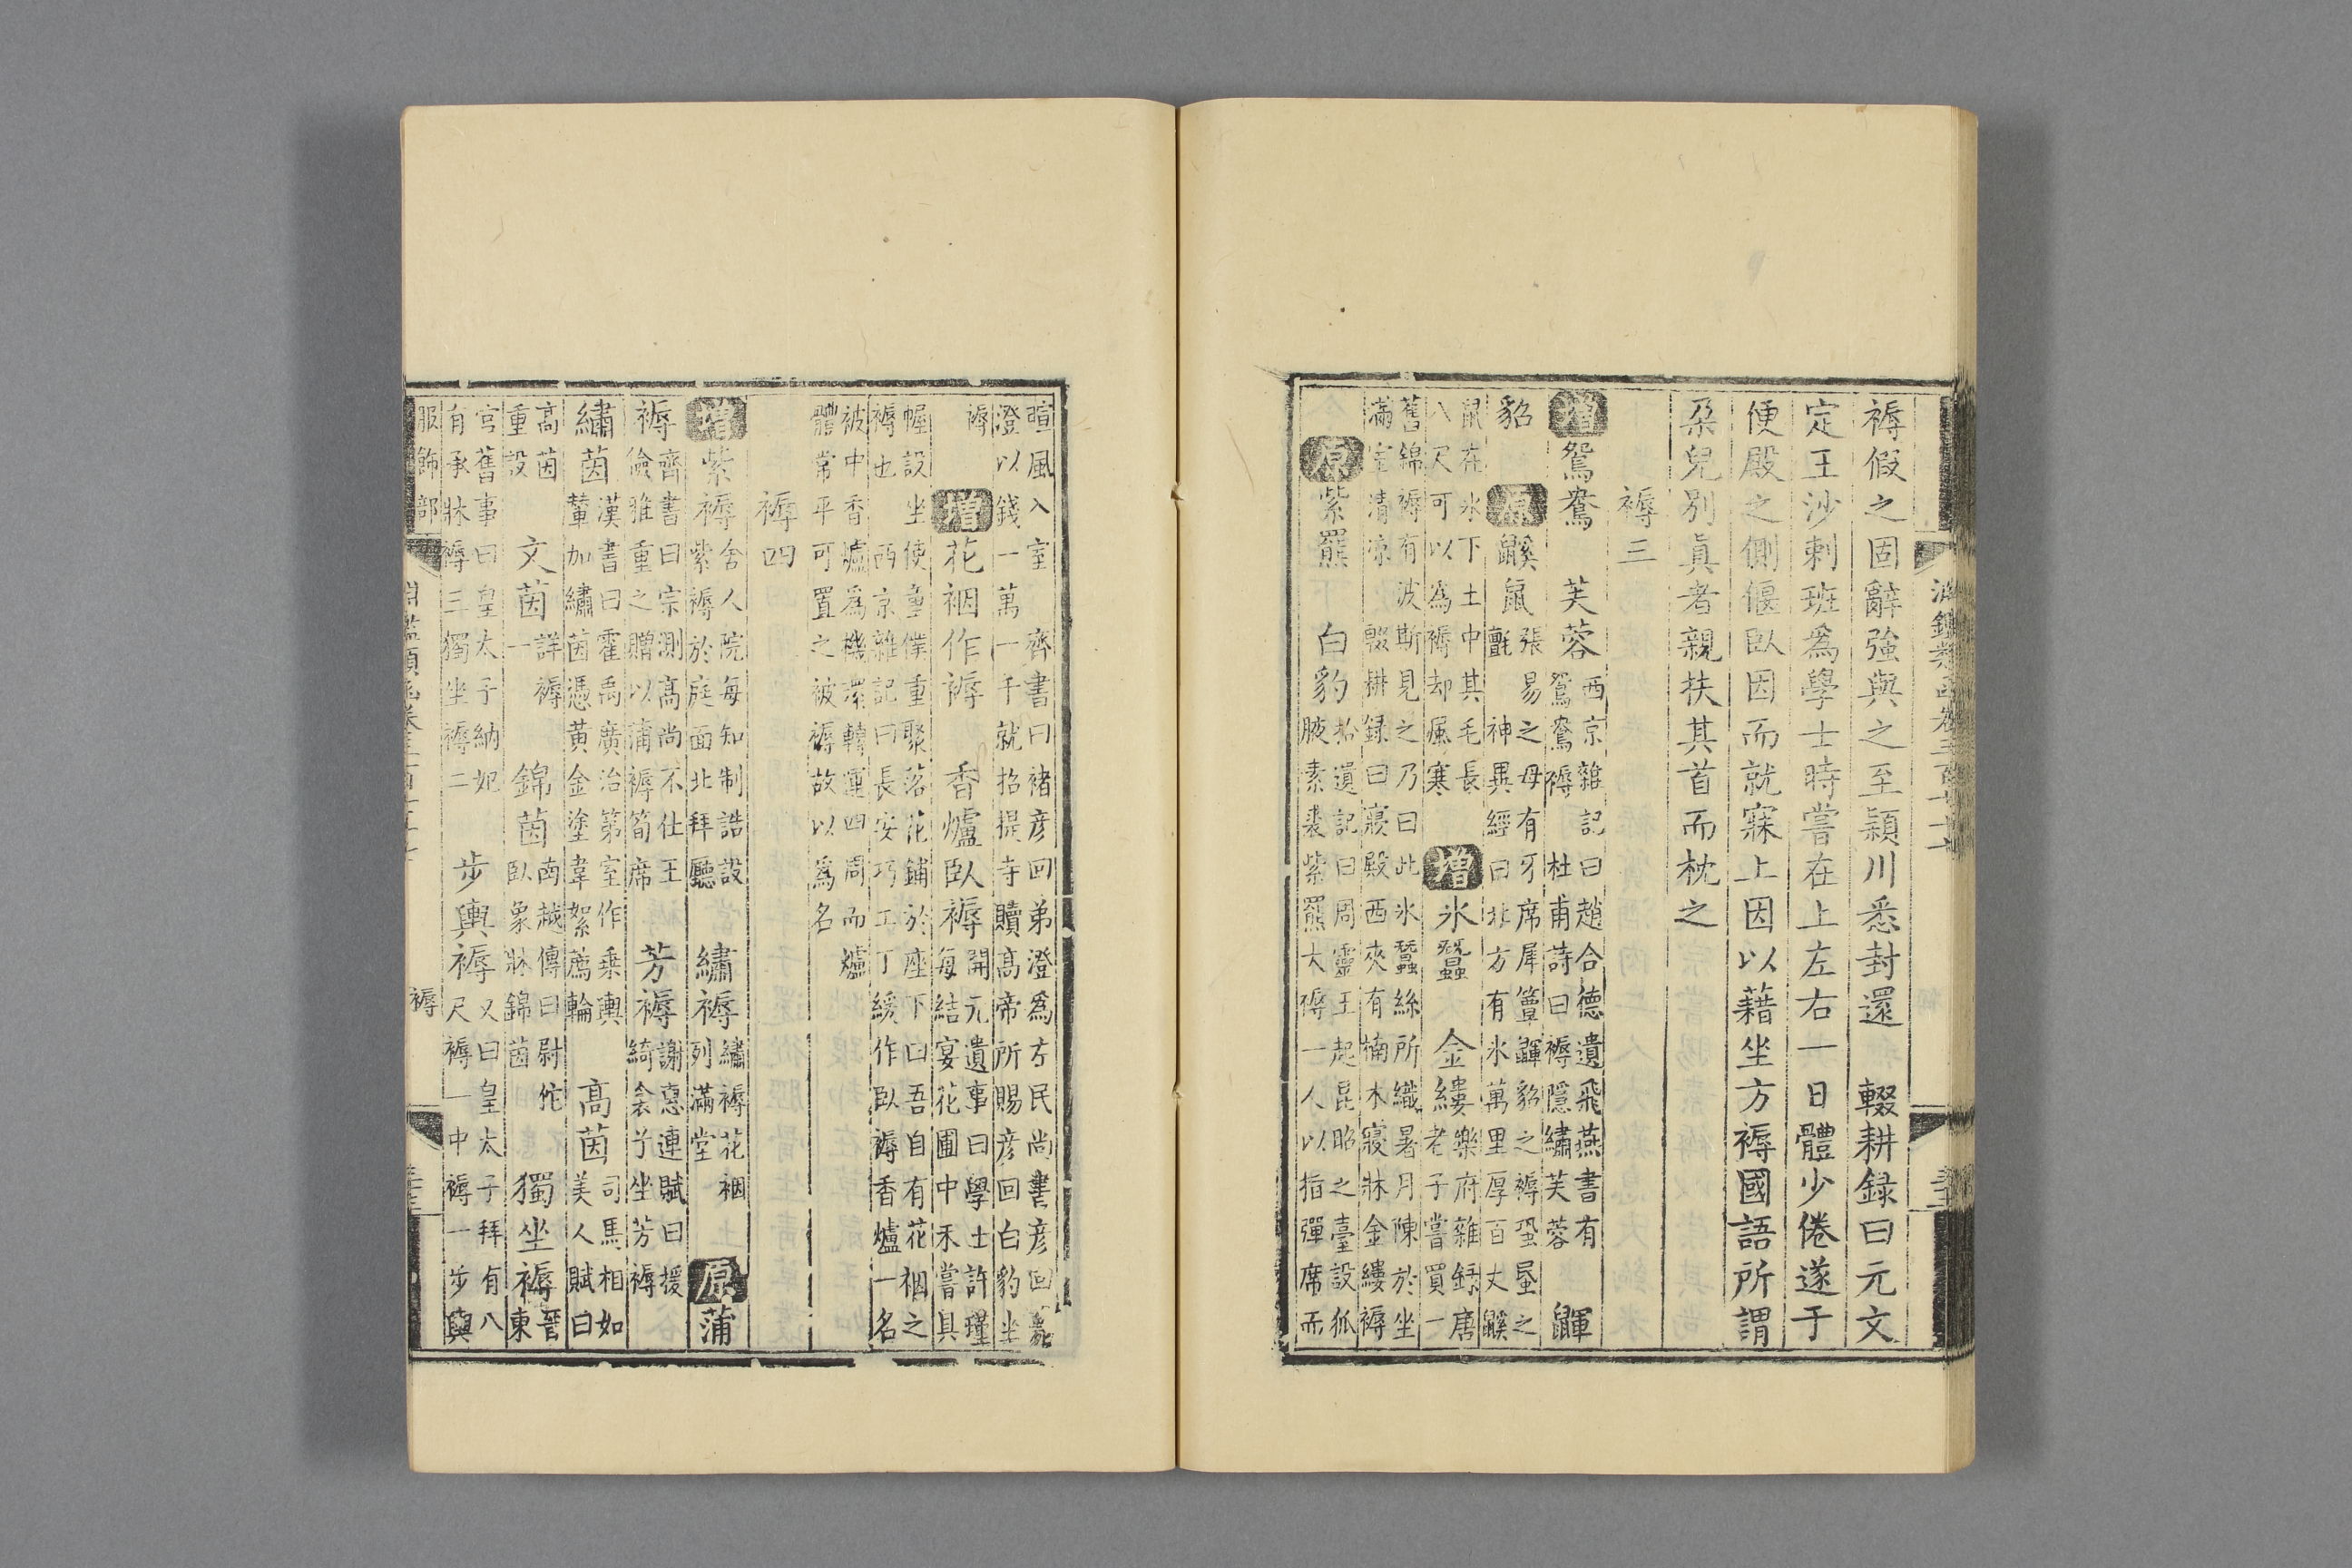 褥假之固辭強與之至潁川悉封還　輟耕録曰元文
定王沙剌班爲學士時嘗在上左右一日體少倦遂于
便殿之側偃臥因而就寐上因以藉坐方褥國語所謂
朶兒別眞者親扶其首而枕之
褥三
增鴛鴦　芙蓉
西京雜記曰趙合德遺飛燕書有
鴛鴦褥　杜甫詩曰褥隱繡芙蓉
鼲
貂　原鼷鼠
張易之母有牙席犀簟鼲貂之褥蛩蝨之
氊　神異經曰北方有氷萬里厚百丈鼷
鼠在氷下土中其毛長
八尺可以為褥却風寒
增氷蠶　金縷
樂府雜録唐
老子嘗買一
舊錦褥有波斯見之乃曰此氷蠶絲所織暑月陳於坐
滿室清凉　輟耕録曰寢殿西夾有楠木寢牀金縷褥
原紫羆　白豹
拾遺記曰周靈王起昆昭之臺設狐
腋素裘紫羆大褥一人以指彈席而
暄風入室　齊書曰褚彦回弟澄爲左民尚書彦回薨
澄以錢一萬一千就招提寺贖髙帝所賜彦回白豹坐
褥
增花裀作褥　香爐臥褥
開元遺事曰學士許瑾
每結宴花圃中禾嘗具
幄設坐使童僕重聚落花鋪於座下曰吾自有花裀之
褥也　西京雜記曰長安巧工丁緩作臥褥香爐一名
被中香爐爲機澴轉運四周而爐
體常平可置之被褥故以爲名
褥四
增紫褥
舍人院每知制誥設
紫褥於庭面北拜廳
繡褥
繡褥花裀
列滿堂
原蒲
褥
齊書曰宗測髙尚不仕王
儉雅重之贈以蒲褥筍席
芳褥
謝惠連賦曰援
綺衾兮坐芳褥
繡茵
漢書曰霍禹廣治第室作乗輿
輦加繡茵憑黄金塗韋絮薦輪
髙茵
司馬相如
美人賦曰
髙茵
重設
文茵
詳褥
一
錦茵
南越傳曰尉佗
臥象牀錦茵
獨坐褥
晉
東
宫舊事曰皇太子納妃
有承牀褥三獨坐褥二
步輿褥
又曰皇太子拜有八
尺褥一中褥一步輿
服飾部
褥